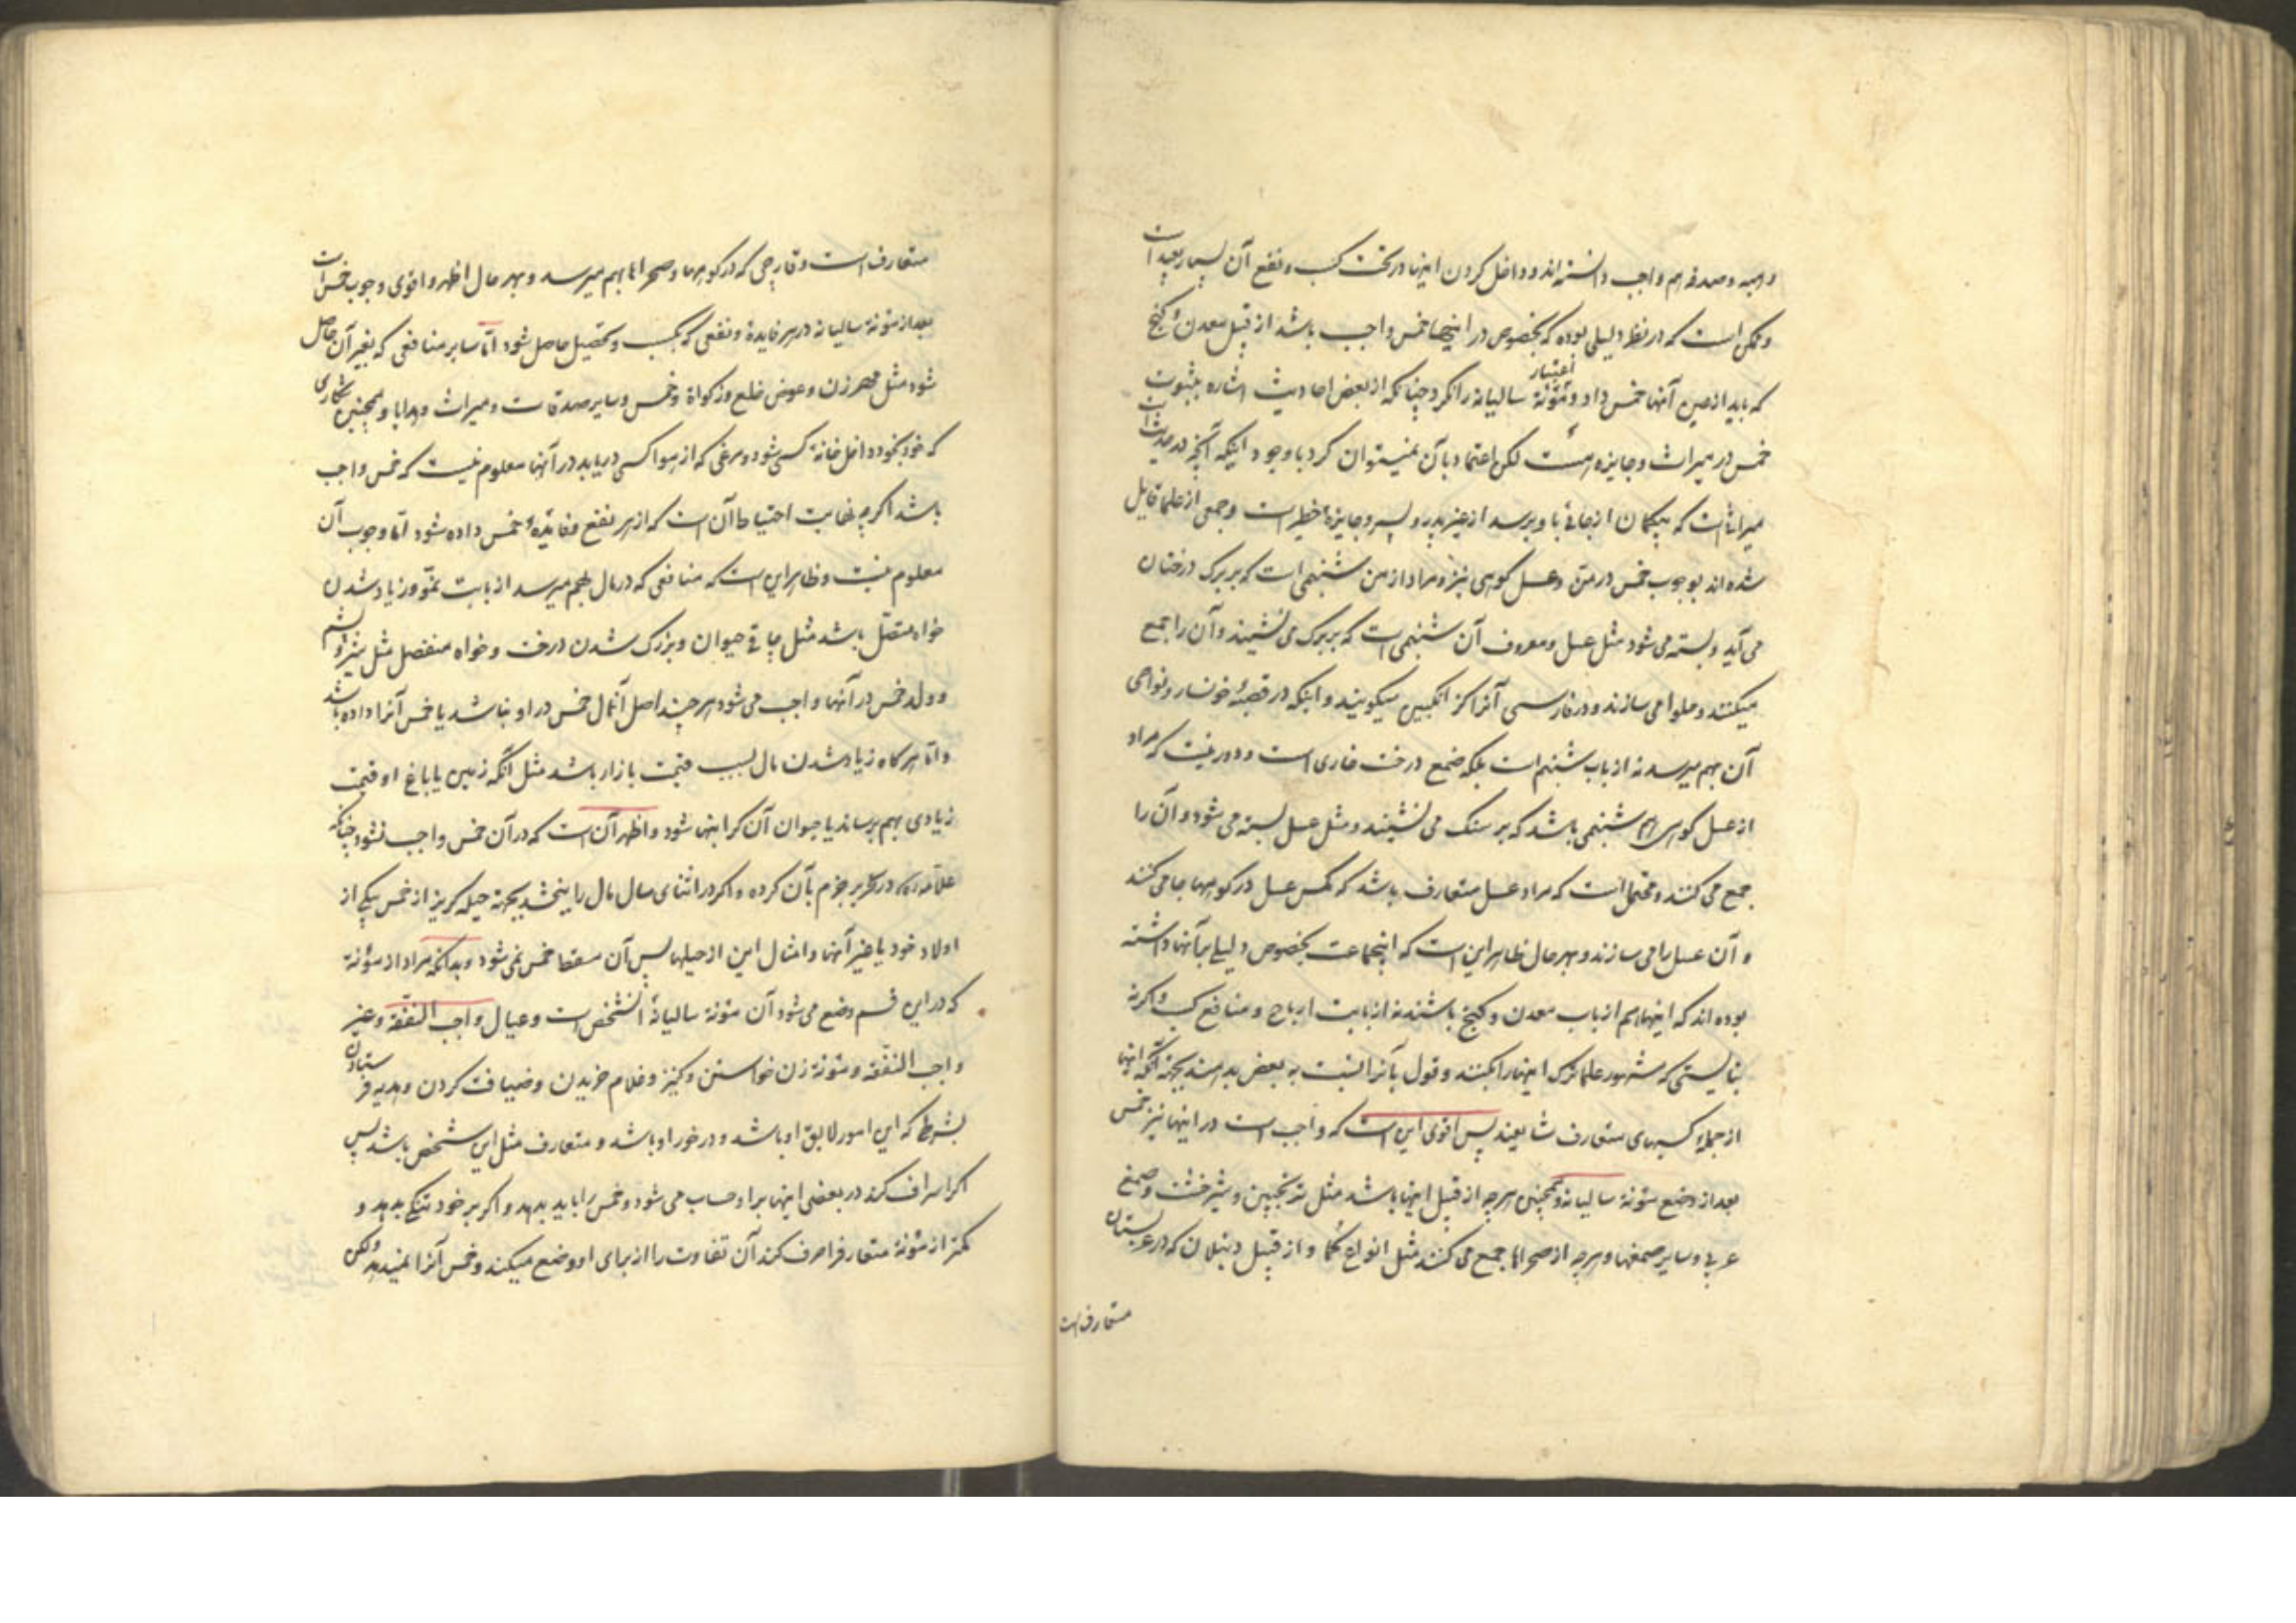 و هبه و صدقه هم واجب دانسته‌اند و داخل کردن اینها در تحت کسب و نفع آن بسیار بعید است
و ممکن است که در نظر دلیلی بوده که بخصوص در اینها خمس واجب باشد از قبیل معدن و کنج
که باید از عین آنها خمس داد و اعتبار مؤنة سالیانه را نکرد چنانکه از بعض احادیث اشاره بثبوت
خمس در میراث و جایزه هست لکن اعتماد بآن نمیتوان کرد با وجود اینکه آنچه در حدیث است
میراثی است که بیکمان از جائی باو برسد از غیر پدر و پسر و جایزۀ خطیر است و جمعی از علما قایل
شده‌اند بوجوب خمس در من و عسل کوهی نیز و مراد از من شبنمی است که بر برک درختان
می آید و بسته می شود مثل عسل و معروف آن شبنمی است که بر برک می نشیند و آن را جمع
میکنند و حلوا می سازند و در فارسی آنرا کز انکبین میکویند و اینکه در قصبۀ خونسار و نواحی
آن بهم میرسد نه از باب شبنم است بلکه صمغ درخت خاری است و دور نیست که مراد
از عسل کوهی هم شبنمی باشد که بر سنک می نشیند و مثل عسل بسته می شود و آن را
جمع می کنند و محتمل است که مراد عسل متعارف باشد که مکس عسل در کوهها جا می کند
و آن عسل را می سازند و بهر حال ظاهر این است که اینجماعت بخصوص دلیلی بر آنها داشته
بوده‌اند که اینها هم از باب معدن و کنج باشند نه از بابت ارباح و منافع کسب و اکر نه
بنایستی که مشهور علما ترک اینها را بکنند و قول بآنرا نسبت به بعض بدهند بجهة آنکه اینها
از جملۀ کسبهای متعارف شایعند پس اقوی این است که واجب است در اینها نیز خمس
بعد از وضع مؤنة سالیانه و همچنین هرچه از قبیل اینها باشد مثل ترنجبین و شیرخشت و صمغ
عربی و سایر صمغها و هرچه از صحراها جمع می کنند مثل انواع کما و از قبیل دنبلان که در عربستان
متعارف است
متعارف است و قارچی که در کوهها و صحراها بهم میرسد و بهر حال اظهر و اقوی وجوب خمس است
بعد از مؤنة سالیانه در هر فایدۀ و نفعی که بکسب و تحصیل حاصل شود امّا سایر منافعی که بغیر آن حاصل
شود مثل مهر زن و عوض خلع و زکواة و خمس و سایر صدقات و میراث و هدایا و همچنین شکاری
که خود بخود داخل خانۀ کسی شود و مرغی که از هوا کسی دریابد در آنها معلوم نیست که خمس واجب
باشد اکرچه نهایت احتیاط آن است که از هر نفع و فایدۀ خمس داده شود امّا وجوب آن
معلوم نیست و ظاهر این است که منافعی که در مال بهم میرسد از بابت نموّ و زیاد شدن
خواه متصّل باشد مثل چاقی حیوان و بزرک شدن درخت و خواه منفصل مثل شیر و پشم
و ولد خمس در آنها واجب می شود هر چند اصل آنمال خمس در او نباشد یا خمس آنرا داده باشد
و امّا هر کاه زیاد شدن مال بسبب قیمت بازار باشد مثل آنکه زمین یا باغ او قیمت
زیادی بهم رساند یا حیوان آن کرانبها شود و اظهر آن است که در آن خمس واجب نشود چنانکه
علاّمه ره در تحریر جزم بآن کرده و اکر در اثنای سال مال را ببخشد بجهة حیله کریز از خمس بیکی از
اولاد خود یا غیر آنها و امثال این از حیلها پس آن مسقط خمس نمی شود و بدانکه مراد از مؤنة
که در این قسم وضع می شود آن مؤنة سالیانۀ آنشخص است و عیال واجب النفقه و غیر
واجب النفقه و مؤنة زن خواستن و کنیز و غلام خریدن و ضیافت کردن و هدیه فرستادن
بشرطی که این امور لایق او باشد و در خور او باشد و متعارف مثل این شخص باشد پس
اکر اسراف کند در بعضی اینها بر او حساب می شود و خمس را باید بدهد و اکر بر خود تنکی بدهد و
کمتر از مؤنة متعارف را صرف کند آن تفاوت را از برای او وضع میکنند و خمس آنرا نمیدهد ولکن